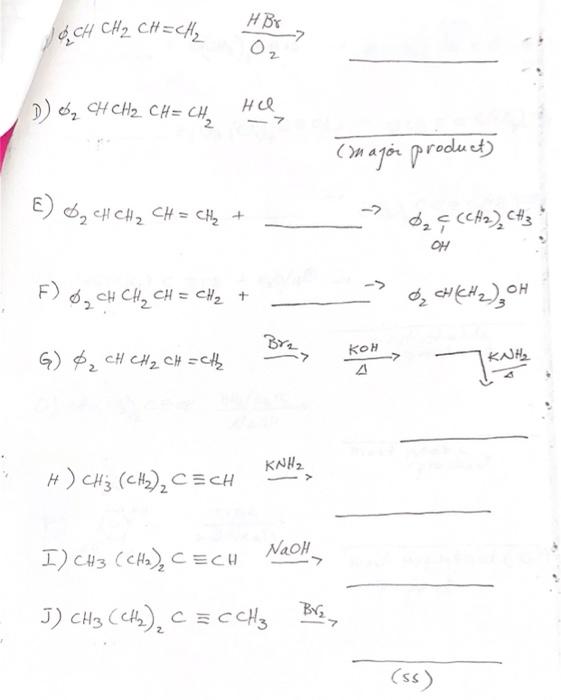 ) ϕ₂CH CH₂ CH=CH₂ HBr/O₂ → ______
D) ϕ₂ CHCH₂ CH=CH₂ HCl → ______
(major product)
E) ϕ₂ CHCH₂ CH=CH₂ + ______ → ϕ₂ C (CH₂)₂ CH₃
OH
F) ϕ₂ CH CH₂ CH=CH₂ + ______ → ϕ₂ CH(CH₂)₃OH
G) ϕ₂ CH CH₂ CH=CH₂ Br₂ → KOH/Δ → KNH₂/Δ
______
H) CH₃ (CH₂)₂ C≡CH KNH₂ → ______
I) CH₃ (CH₂)₂ C≡CH NaOH → ______
J) CH₃ (CH₂)₂ C≡CCH₃ Br₂ → ______
(ss)